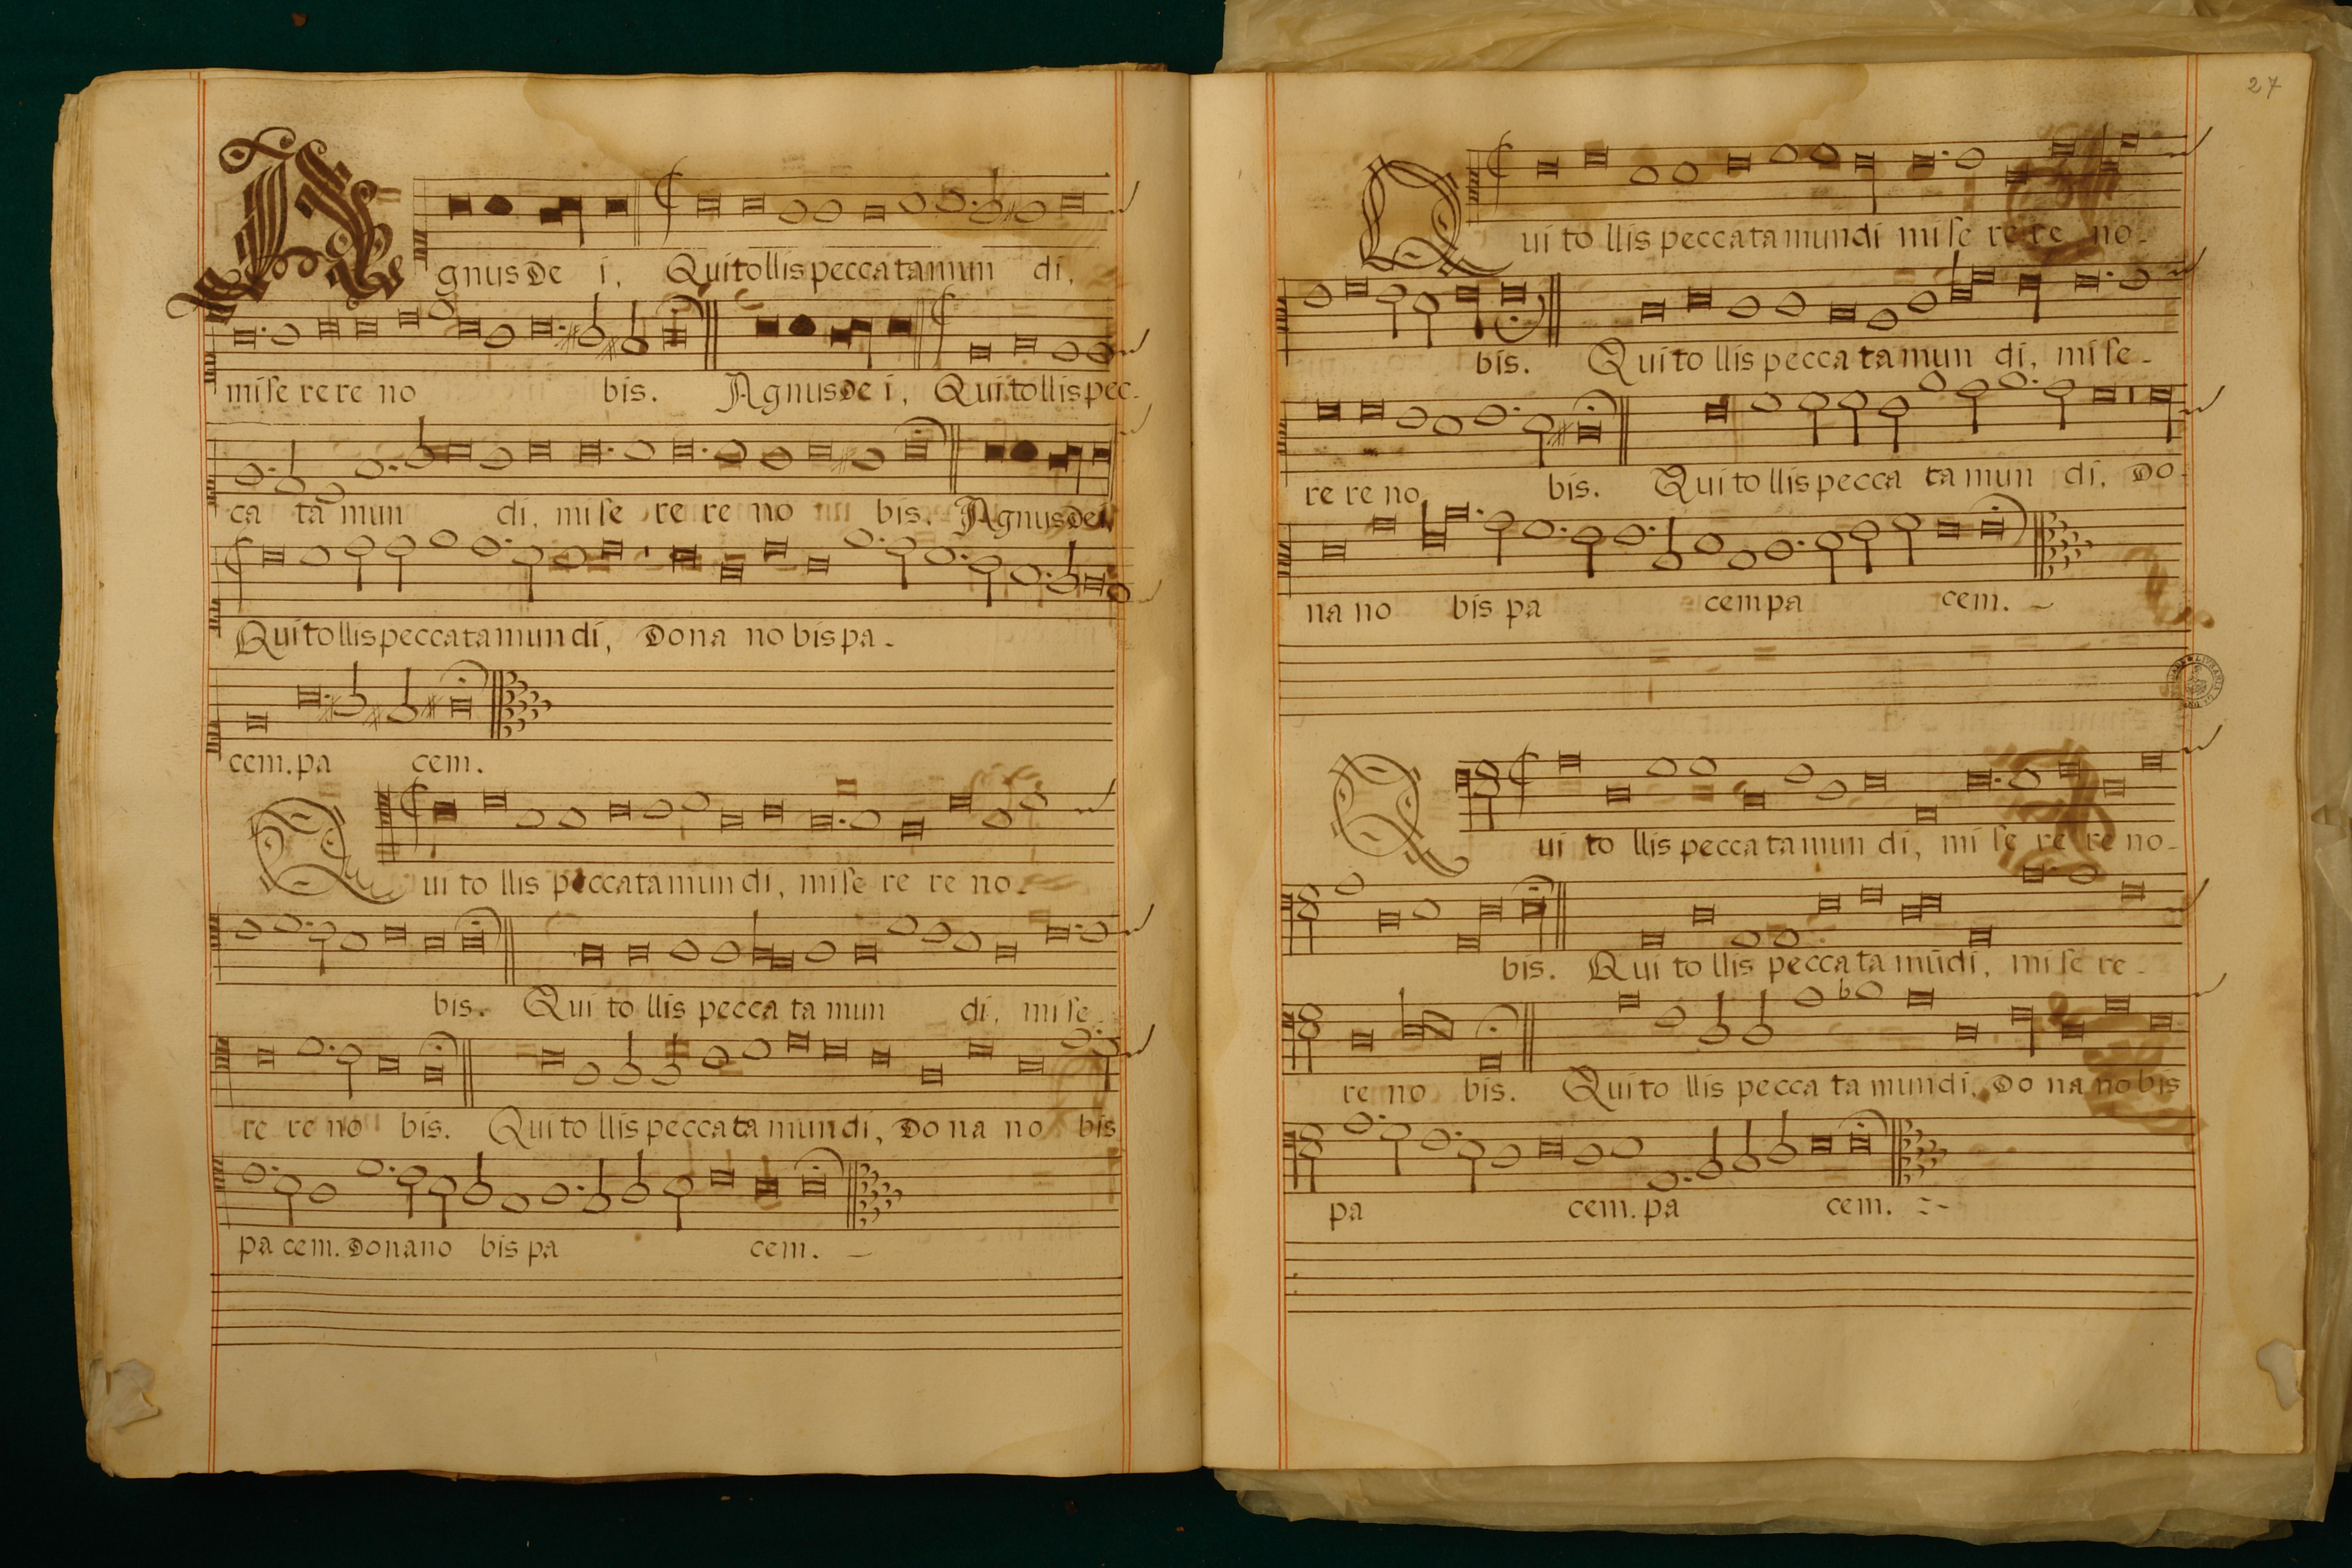 Agnus De i, Qui tollis peccata mun di,
mi se re re no bis. Agnus De i, Qui tollis pec-
ca ta mun di, mi se re re no bis. Agnus dei,
Qui tollis peccata mun di, Do na no bis pa-
cem. pa cem.
Qui to llis peccata mun di, mi se re re no-
bis. Qui to llis pecca ta mun di, mi se
re re no bis. Qui to llis pecca ta mun di, Do na no bis
pa cem. Do na no bis pa cem.
27
Qui to llis peccata mundi mi se re re no-
bis. Qui to llis pecca ta mun di, mi se-
re re no bis. Qui to llis pecca ta mun di, Do-
na no bis pa cem pa cem.
Qui to llis pecca ta mun di, mi se re re no-
bis. Qui to llis pecca ta mũdi, mi se re-
re no bis. Qui to llis pecca ta mundi, Do na no bis
pa cem. pa cem.